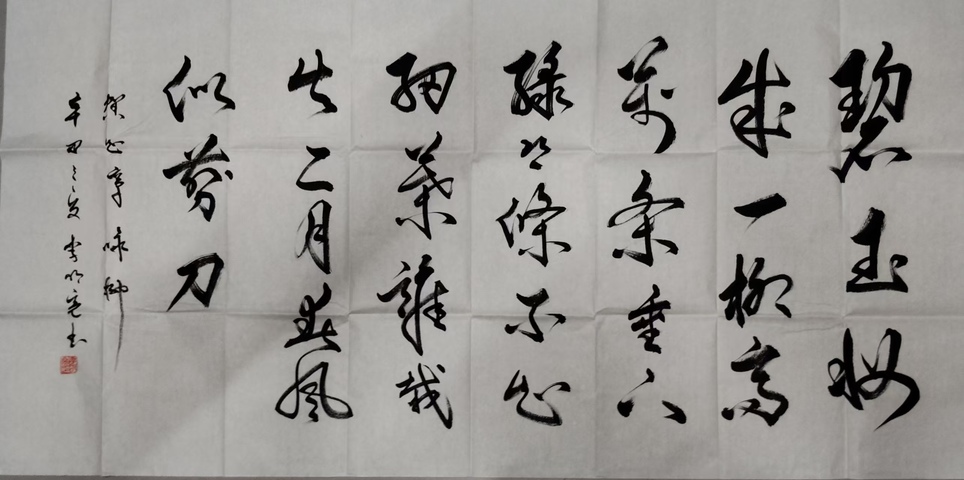 碧玉妝
成一柳高
萬条垂下
绿丝絛不知
細葉誰裁
出二月春風
似剪刀
賀知章咏柳
辛丑之夏李明亮书